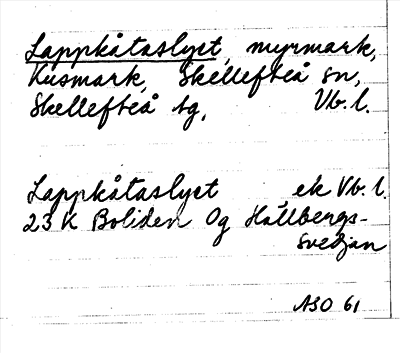 Lappkåtaslyet, myrmark,
Kusmark, Skellefteå sn,
Skellefteå tg, Vb. l.
Lappkåtaslyet ek Vb. l.
23 K Boliden 0g Hällbergs-
svedjan
ASO 61